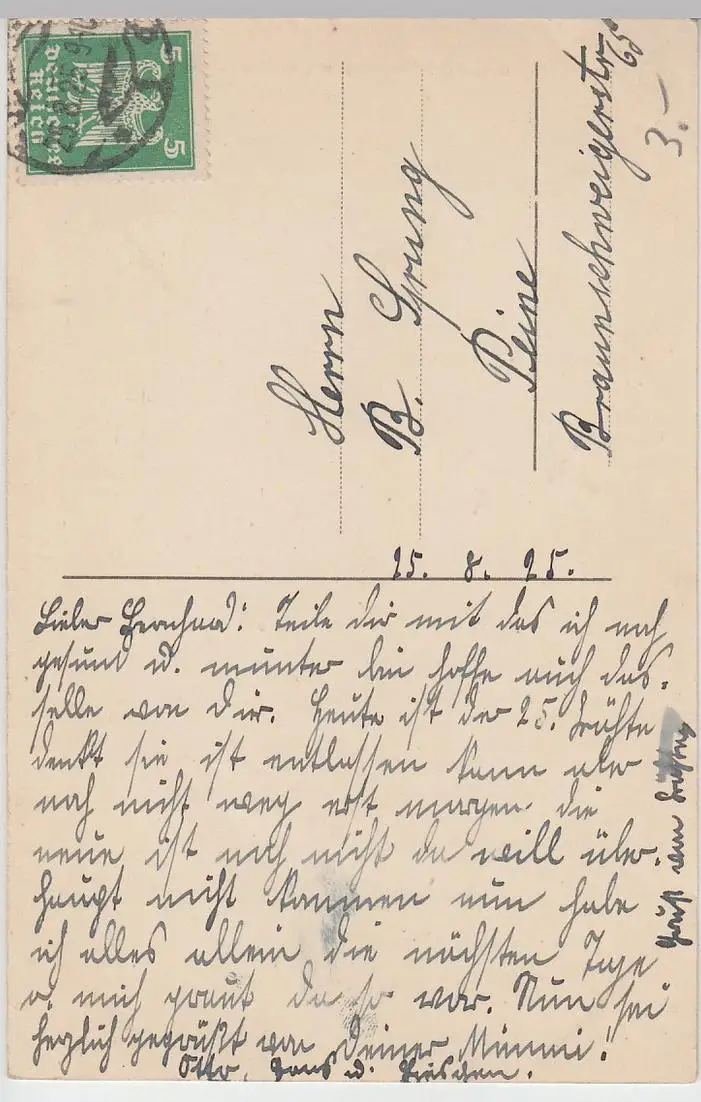 5
5
Deutsches
Reich
25.8.25 9-10
Herrn
B. Sprung
Peine
Braunschweigerstr 65
3.-
25. 8. 25.
Lieber Bernhard! Teile dir mit das ich noch
gesund u. munter bin hoffe auch das-
selbe von dir. Heute ist der 25.
denkt sie ist entlassen kann aber
noch nicht weg erst morgen. die
neue ist noch nicht da will über-
haupt nicht kommen nun habe
ich alles allein die nächsten Tage
o. mich graut da so vor. Nun sei
herzlich gegrüßt von Deiner Mimmi!
Otto, Hans u. Lieschen.
Gruß von